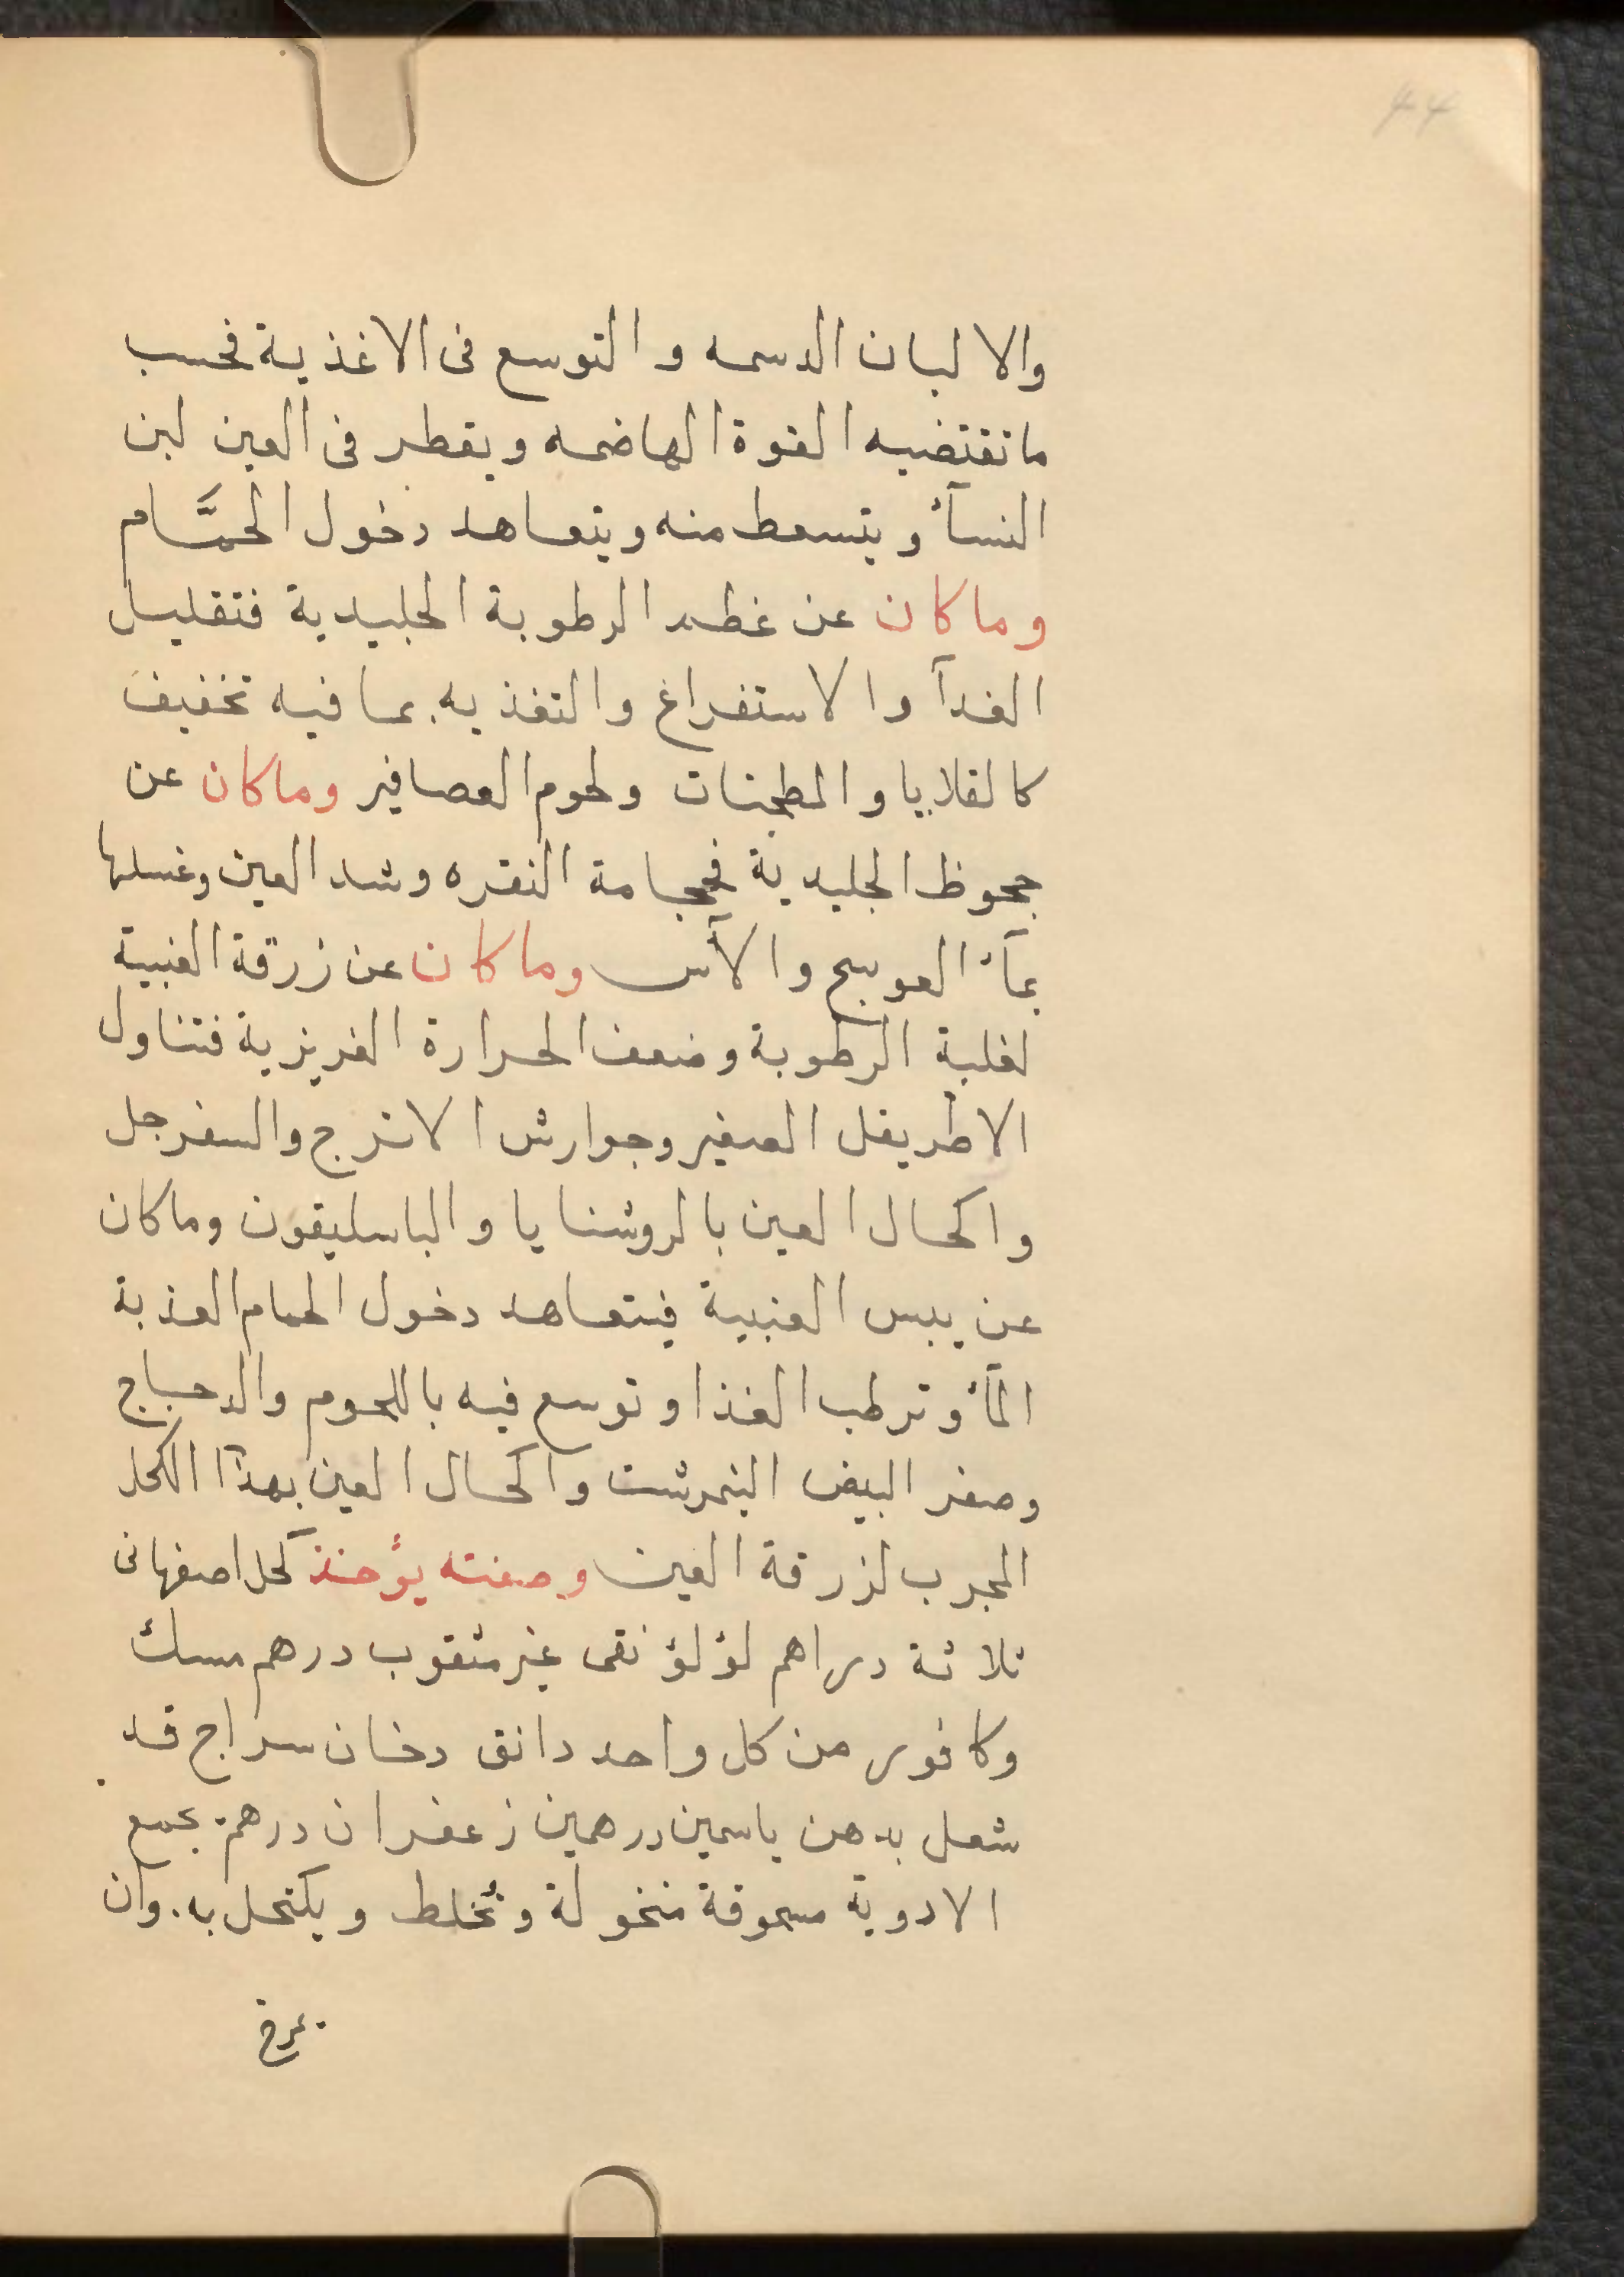 44
والالبان الدسمه والتوسع فى الاغذية فحسب
ما تقتضيه القوة الهاضمه ويقطر فى العين لبن
النسآء ويتسعط منه ويتعاهد دخول الحمَّام
وما كان عن غطـ الرطوبة الجليدية فتقليل
الغدآ والاستفراغ والتغذيه بما فيه تخفيف
كالقلايا والمطجنات ولحوم العصافير وما كان عن
جحوظ الجليدية فحجامة النقره وشد العين وغسلها
بمآء العوسج والآس وما كان عن زرقة العنبية
لغلبة الرطوبة وضعف الحرارة الغريزية فتناول
الاطريفل الصغير وجوارش الاترج والسفرجل
واكحال العين بالروشنايا والباسليقون وما كان
عن يبس العنبية فيتعاهد دخول الحمام العذبة
المآء وترطب الغذا وتوسع فيه باللحوم والدجاج
وصفر البيض النمرشت واكحال العين بهذا الكحل
المجرب لزرقة العين وصفته يؤخذ كحل اصفهانى
ثلاثة دراهم لؤلؤ نقى غير مثقوب درهم مسك
وكافور من كل واحد دانق دخان سراج قد
شعل بدهن ياسمين درهمين زعفران درهم تجمع
الادوية مسحوقة منخولة وتُخلط ويكتحل به. وان